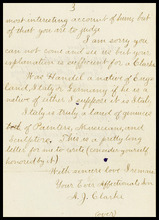 3
most interesting account of him, but
of that you are to judge.
I am sorry you
can not come and see us but your
explanation is sufficient for a Clarke
Was Handel a native of Eng-
land, Italy or Germany of he is a
native of either I suppose it is Italy.
Italy is truly a land of geniuses
both of Painters, Musicians, and
Sculptors. This is a pretty long
letter for me to write (consider yourself
honored by it)
With sincere love I remain
Your Ever Affectionate
A. J. Clarke
(over)